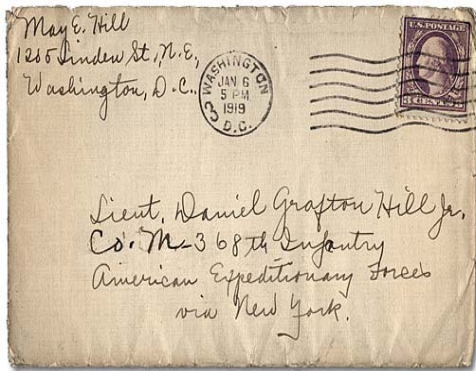 May E. Hill
1205 Linden St., N.E.,
Washington, D.C.
WASHINGTON
JAN 6
5 PM
1919
D.C.
U.S. POSTAGE
3 CENTS 3
Lieut. Daniel Grafton Hill Jr.
Co. M-368th Infantry
American Expeditionary Forces
via New York.